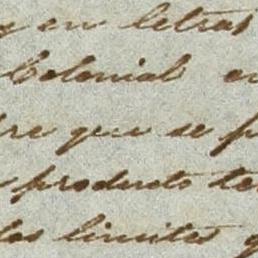 y en letras
Colonial en
que se p
producto te
los limites q